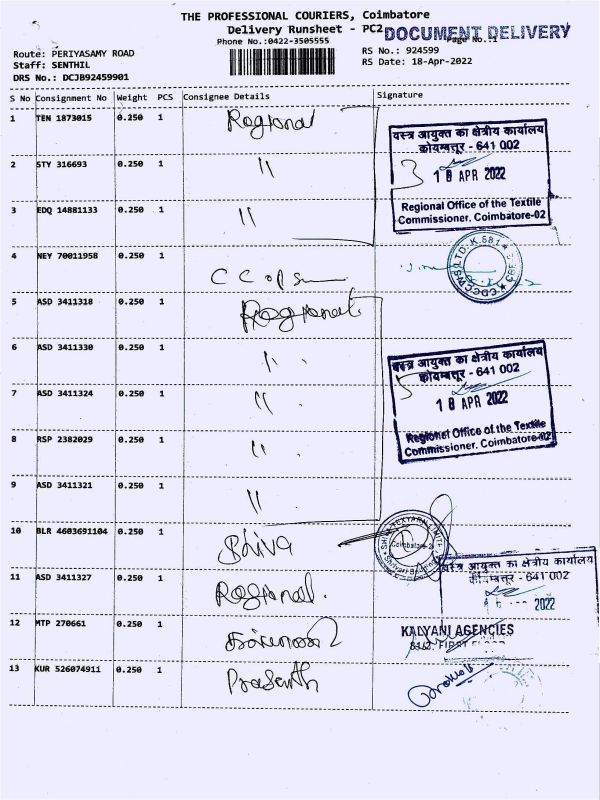 THE PROFESSIONAL COURIERS, Coimbatore
Delivery Runsheet - PC2
DOCUMENT DELIVERY
Phone No.:0422-3505555
Page No.:1
Route: PERIYASAMY ROAD
RS No.: 924599
Staff: SENTHIL
RS Date: 18-Apr-2022
DRS No.: DCJB92459901
S No Consignment No Weight PCS Consignee Details Signature
1 TEN 1873015 0.250 1 Regional
वस्त्र आयुक्त का क्षेत्रीय कार्यालय
कोयम्बत्तूर - 641 002
2 STY 316693 0.250 1 "
3
18 APR 2022
3 EDQ 14881133 0.250 1 "
Regional Office of the Textile
Commissioner, Coimbatore-02
4 NEY 70011958 0.250 1
5 ASD 3411318 0.250 1 Regional
6 ASD 3411330 0.250 1 "
वस्त्र आयुक्त का क्षेत्रीय कार्यालय
कोयम्बत्तूर - 641 002
7 ASD 3411324 0.250 1 "
5
18 APR 2022
8 RSP 2382029 0.250 1 "
Regional Office of the Textile
Commissioner, Coimbatore-02
9 ASD 3411321 0.250 1 "
10 BLR 4603691104 0.250 1 Shiva
Coimbatore-2
11 ASD 3411327 0.250 1 Regional.
वस्त्र आयुक्त का क्षेत्रीय कार्यालय
कोयम्बत्तूर - 641 002
2022
12 MTP 270661 0.250 1
KALYANI AGENCIES
81/2, FIRST FLOOR
13 KUR 526074911 0.250 1 Prasanth